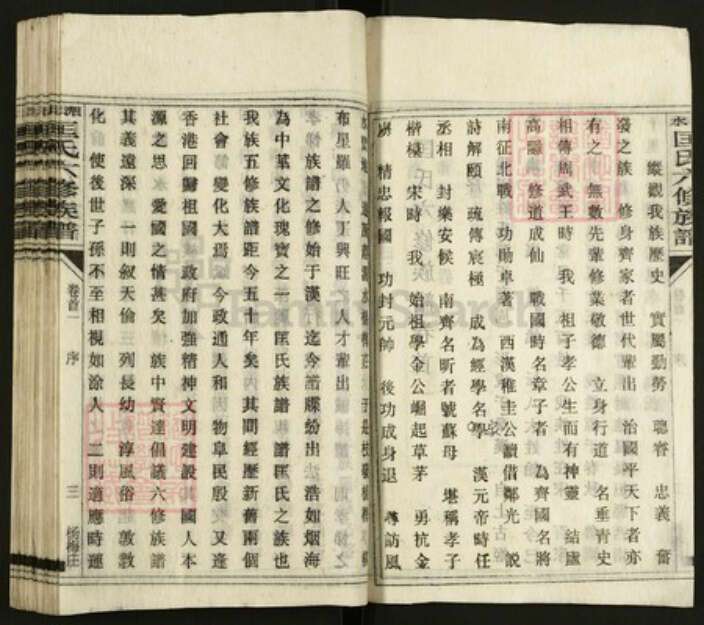 匡氏六修族譜
縱觀我族歷史 實屬勤勞 聰睿 忠義 奮
發之族 修身齊家者世代輩出 治國平天下者亦
有之 無數先輩修業敬德 立身行道 名垂青史
相傳周武王時 我 祖子孝公生而有神靈 結廬
高隱 修道成仙 戰國時名章子者 為齊國名將
南征北戰 功勛卓著 西漢稚圭公讀借鄰光 說
詩解頤 疏傳宸極 成為經學名學 漢元帝時任
丞相 封樂安候 南齊名昕者號蘇母 堪稱孝子
楷模 宋時 我 始祖學金公崛起草茅 勇抗金
虜 精忠報國 功封元帥 後功成身退 尋訪風
布星羅 行人丁興旺 人才輩出
族譜之修始于漢 迄今譜牒紛出 浩如烟海
為中華文化瑰寶之一 匡氏族譜 譜匡氏之族也
我族五修族譜距今五十年矣 其間經歷新舊兩個
社會 變化大焉 今政通人和 物阜民殷 又逢
香港回歸祖國 政府加強精神文明建設 國人本
源之思 水愛國之情甚矣 族中賢達倡議六修族譜
其義遠深 一則叙天倫 列長幼 淳風俗 敦教
化 使後世子孫不至相視如涂人 二則適應時運
匡氏六修族譜
卷首一 序
三
楊梅莊
FamilySearch